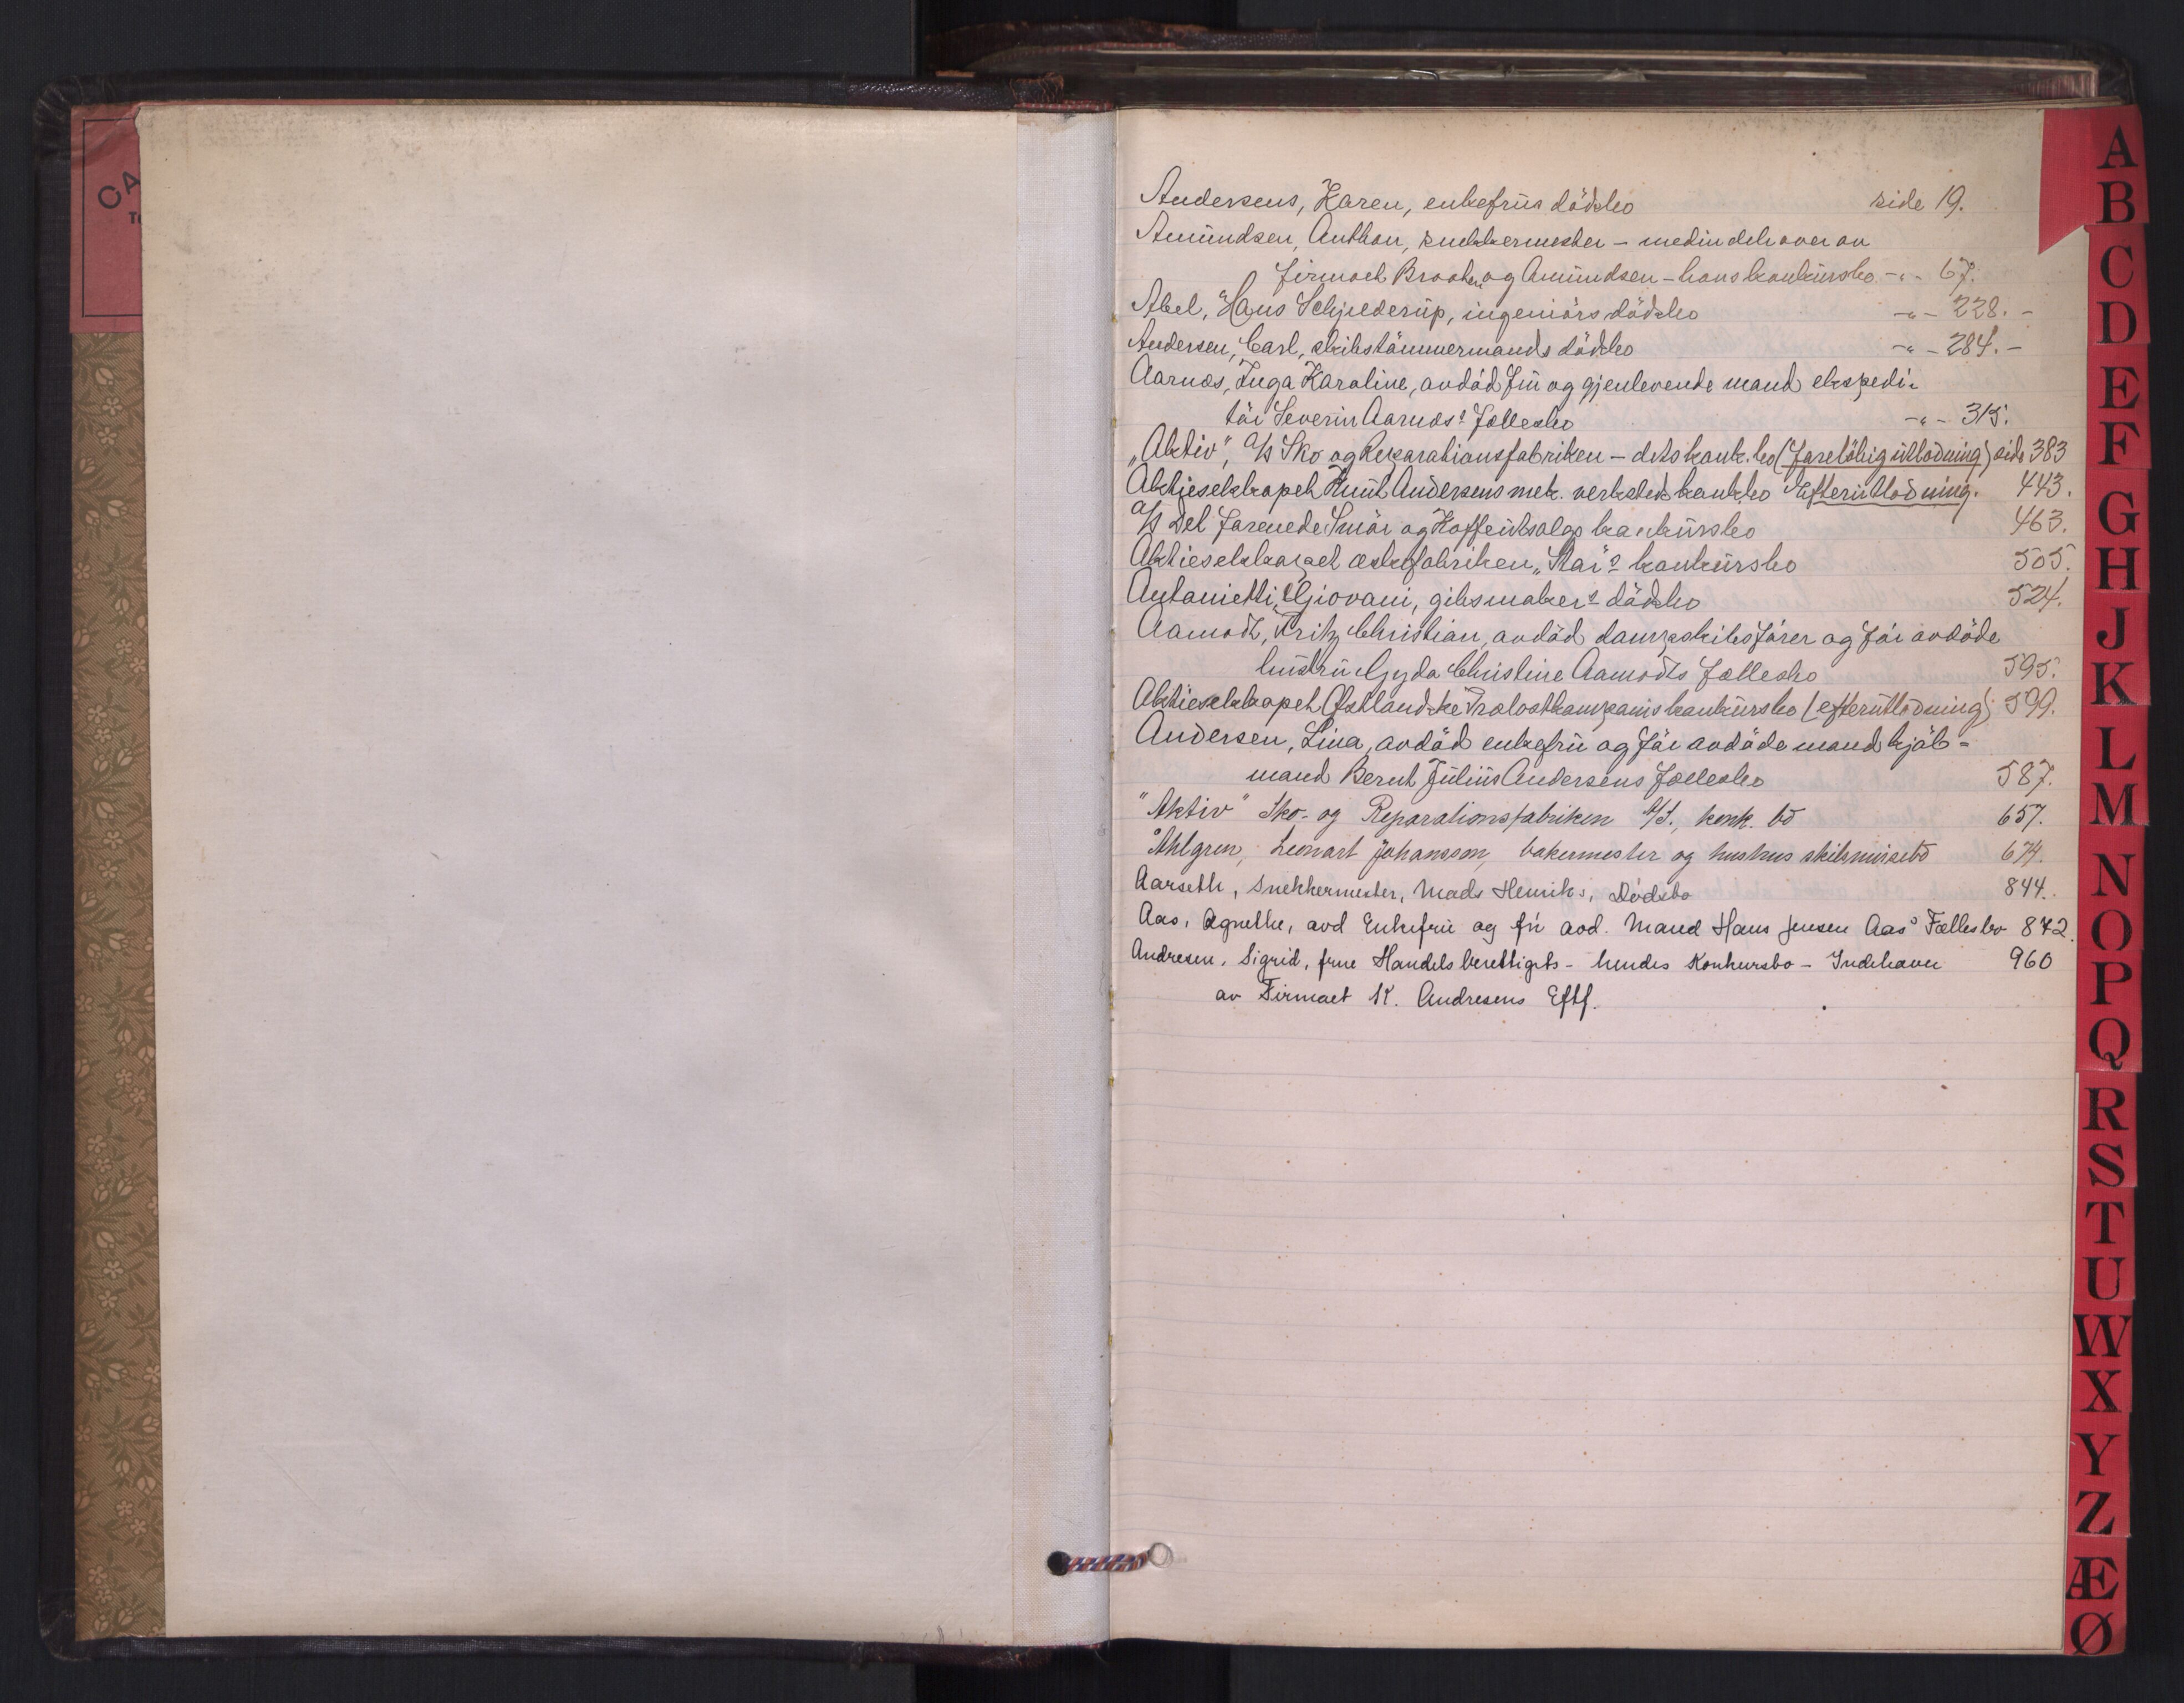 CA
T
Andersens, Karen, enkefrus dödsbo side 19.
Amundsen, Anthon, snekkermester - medindehaver av
firmaet Braaten og Amundsen - hans konkursbo -"- 67.
Abel, Hans Schjelderup, ingeniörs dödsbo -"- 228. -
Andersen, Carl, skibstömmermands dödsbo -"- 284. -
Aarnæs, Inga Karoline, avdöd fru og gjenlevende mand ekspedi-
tör Severin Aarnæs's fællesbo -"- 315.
„Aktiv", A/S Sko og Reparationsfabriken - dets konk.bo (foreløbig utlodning) side 383
Aktieselskapet Knut Andersens mek. verksteds konkbo Efterutlodning. 443.
A/S Det forenede Smör og Kaffeutsalgs konkursbo 463.
Aktieselskapet æskefabriken „Star"s konkursbo 505.
Antonietti, Giovani, gibsmakers dödsbo 524.
Aamodt, Fritz Christian, avdöd dampskibsförer og för avdöde
hustru Gyda Christine Aamodts fællesbo 595.
Aktieselskapet Østlandske Trælastkompanis konkursbo (efterutlodning) 599.
Andersen, Lina, avdöd enkefru og för avdöde mand kjöb-
mand Bernt Julius Andersens fællesbo 587.
"Aktiv" Sko- og Reparationsfabriken A/S., konk. bo 657.
Ahlgren, Leonart Johansson, bakermester og hustrus skilsmissebo 674.
Aarseth, Snekkermester, Mads Henriks, Dödsbo 844.
Aas, Agnethe, avd Enkefru og før avd. Mand Hans Jensen Aas's Fællesbo 872.
Andresen, Sigrid, frue Handelsberettigets - hendes Konkursbo - Indehaver 960
av Firmaet K. Andresens Eftf.
A
B
C
D
E
F
G
H
J
K
L
M
N
O
P
Q
R
S
T
U
W
X
Y
Z
Æ
Ø